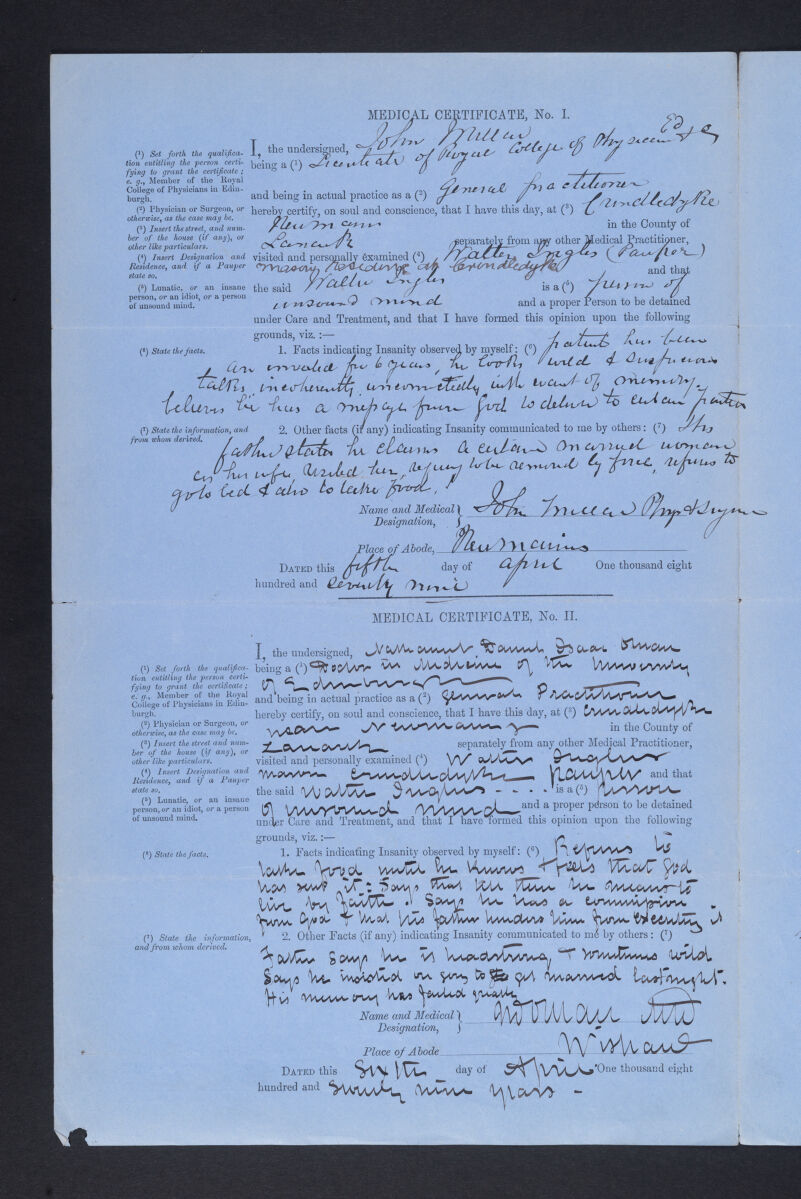 MEDICAL CERTIFICATE, No. I.
(¹) Set forth the qualifica-
tion entitling the person certi-
fying to grant the certificate;
e. g., Member of the Royal
College of Physicians in Edin-
burgh.
(²) Physician or Surgeon, or
otherwise, as the case may be.
(³) Insert the street, and num-
ber of the house (if any), or
other like particulars.
(⁴) Insert Designation and
Residence, and if a Pauper
state so.
(⁵) Lunatic, or an insane
person, or an idiot, or a person
of unsound mind.
I, the undersigned, John Millar
being a (¹) Licentiate of Royal College of Physicians Ed
and being in actual practice as a (²) General practitioner
hereby certify, on soul and conscience, that I have this day, at (³) Crindledyke
Newmains in the County of
Lanark separately from any other Medical Practitioner,
visited and personally examined (⁴) Walter Inglis (Pauper)
mason residing at Crindledyke and that
the said Walter Inglis is a (⁵) person of
unsound mind and a proper Person to be detained
under Care and Treatment, and that I have formed this opinion upon the following
grounds, viz. :—
(⁶) State the facts.
1. Facts indicating Insanity observed by myself: (⁶) patient has been
an invalid for 6 years, he looks wild & suspicious
talks incoherently, unconnectedly with want of memory,
believes he has a message from God to deliver to certain parties
(⁷) State the information, and
from whom derived.
2. Other facts (if any) indicating Insanity communicated to me by others: (⁷) His
father states he claims a certain married woman
as his wife, visited her, to be removed by force, refuses to
go to bed & also to take food.
Name and Medical } John Millar Phys & Surgeon
Designation,
Place of Abode, Newmains
DATED this fifth day of April One thousand eight
hundred and seventy nine
MEDICAL CERTIFICATE, No. II.
(¹) Set forth the qualifica-
tion entitling the person certi-
fying to grant the certificate;
e. g., Member of the Royal
College of Physicians in Edin-
burgh.
(²) Physician or Surgeon, or
otherwise, as the case may be.
(³) Insert the street and num-
ber of the house (if any), or
other like particulars.
(⁴) Insert Designation and
Residence, and if a Pauper
state so.
(⁵) Lunatic, or an insane
person, or an idiot, or a person
of unsound mind.
I, the undersigned, Nathaniel Daniel Isaac Oman
being a (¹) Doctor in Medicine of the University
of Edinburgh
and being in actual practice as a (²) General Practitioner
hereby certify, on soul and conscience, that I have this day, at (³) Crindledyke
near Newmains in the County of
Lanark separately from any other Medical Practitioner,
visited and personally examined (⁴) Walter Inglis
mason Crindledyke pauper and that
the said Walter Inglis - - - - is a (⁵) person
of unsound mind and a proper person to be detained
under Care and Treatment, and that I have formed this opinion upon the following
grounds, viz. :—
(⁶) State the facts.
1. Facts indicating Insanity observed by myself: (⁶) Refuses to
take food until he knows & feels that God
has sent it: Says that till then he means to
live by faith. Says he has a commission
from God & that his father hinders him from executing it
(⁷) State the information,
and from whom derived.
2. Other Facts (if any) indicating Insanity communicated to me by others: (⁷)
Father says he is headstrong & sometimes wild
Says he insisted on going to get married last night.
His memory has failed greatly
Name and Medical } Oman MD
Designation,
Place of Abode Wishaw
DATED this Sixth day of April One thousand eight
hundred and Seventy nine years -